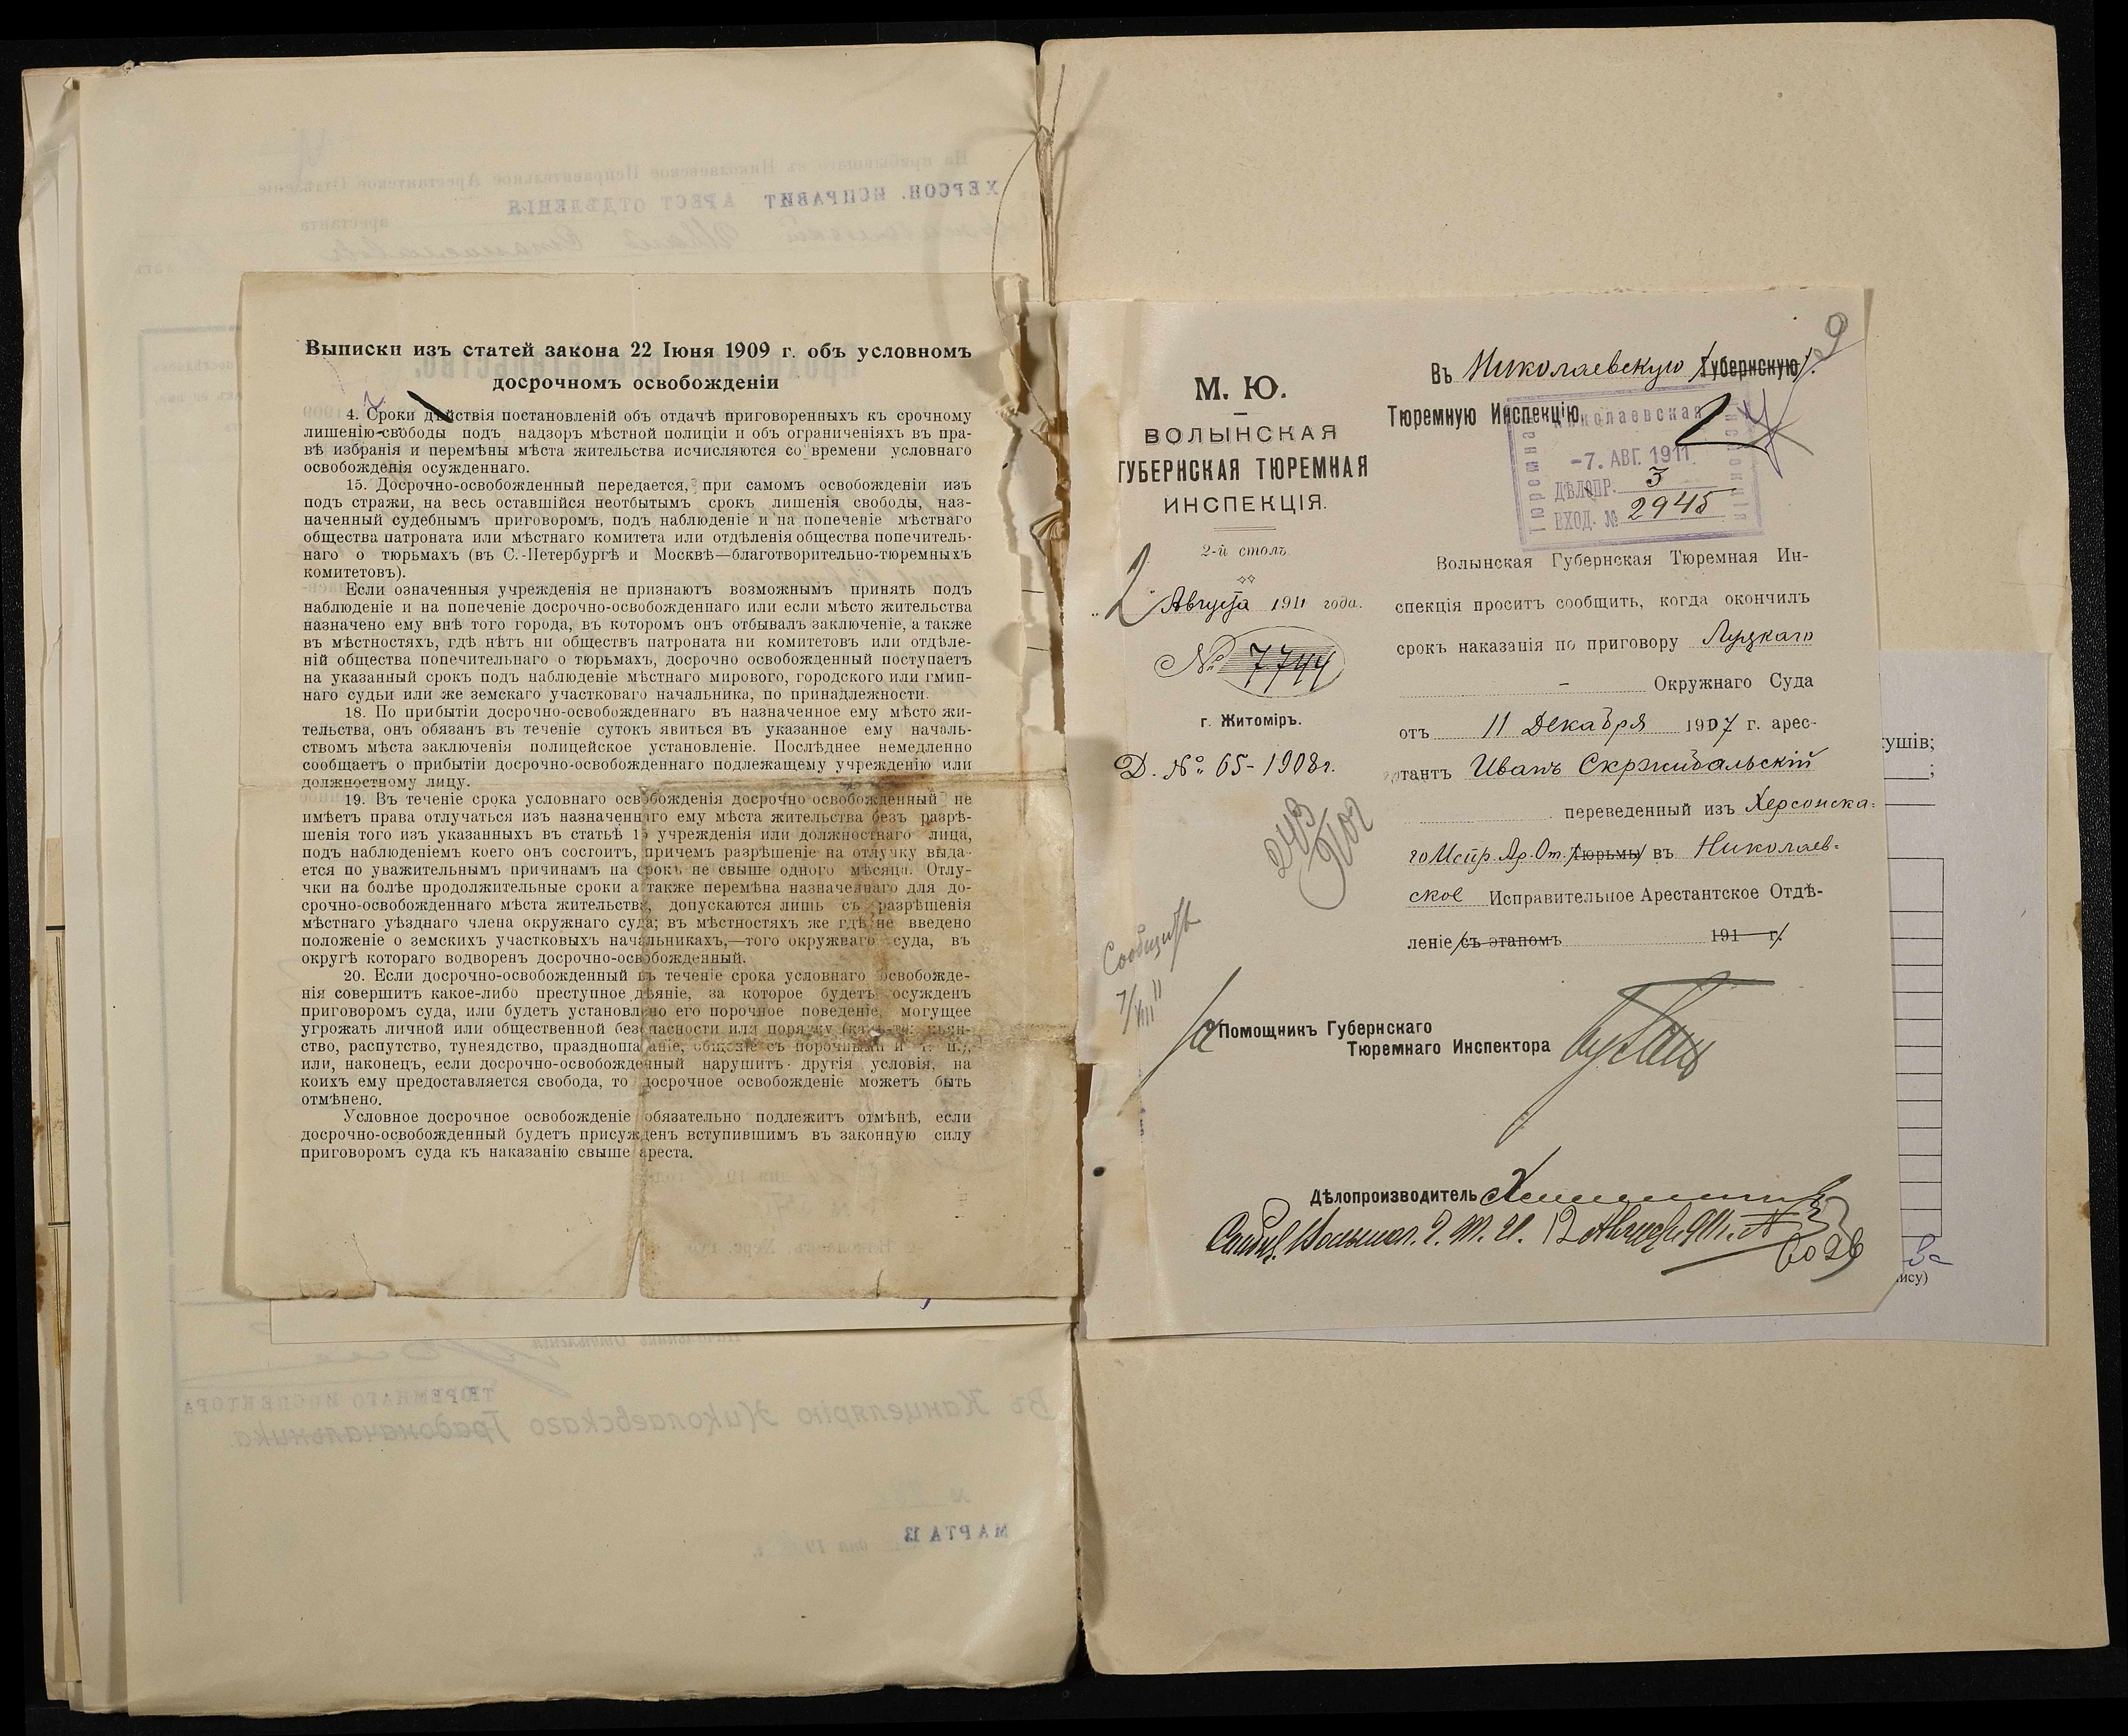 Выписки изъ статей закона 22 Іюня 1909 г. объ условномъ
досрочномъ освобожденіи
4. Сроки дѣйствія постановленій объ отдачѣ приговоренныхъ къ срочному
лишенію свободы подъ надзоръ мѣстной полиціи и объ ограниченіяхъ въ пра-
вѣ избранія и перемѣны мѣста жительства исчисляются со времени условнаго
освобожденія осужденнаго.
15. Досрочно-освобожденный передается, при самомъ освобожденіи изъ
подъ стражи, на весь оставшійся неотбытымъ срокъ лишенія свободы, наз-
наченный судебнымъ приговоромъ, подъ наблюденіе и на попеченіе мѣстнаго
общества патроната или мѣстнаго комитета или отдѣленія общества попечитель-
наго о тюрьмахъ (въ С.-Петербургѣ и Москвѣ—благотворительно-тюремныхъ
комитетовъ).
Если означенныя учрежденія не признаютъ возможнымъ принять подъ
наблюденіе и на попеченіе досрочно-освобожденнаго или если мѣсто жительства
назначено ему внѣ того города, въ которомъ онъ отбывалъ заключеніе, а также
въ мѣстностяхъ, гдѣ нѣтъ ни обществъ патроната ни комитетовъ или отдѣле-
ній общества попечительнаго о тюрьмахъ, досрочно освобожденный поступаетъ
на указанный срокъ подъ наблюденіе мѣстнаго мирового, городского или гмин-
наго судьи или же земскаго участковаго начальника, по принадлежности.
18. По прибытіи досрочно-освобожденнаго въ назначенное ему мѣсто жи-
тельства, онъ обязанъ въ теченіе сутокъ явиться въ указанное ему началь-
ствомъ мѣста заключенія полицейское установленіе. Послѣднее немедленно
сообщаетъ о прибытіи досрочно-освобожденнаго подлежащему учрежденію или
должностному лицу.
19. Въ теченіе срока условнаго освобожденія досрочно освобожденный не
имѣетъ права отлучаться изъ назначеннаго ему мѣста жительства безъ разрѣ-
шенія того изъ указанныхъ въ статьѣ 15 учрежденія или должностнаго лица,
подъ наблюденіемъ коего онъ состоитъ, причемъ разрѣшеніе на отлучку выда-
ется по уважительнымъ причинамъ на срокъ не свыше одного мѣсяца. Отлу-
чки на болѣе продолжительные сроки а также перемѣна назначеннаго для до-
срочно-освобожденнаго мѣста жительства, допускаются лишь съ разрѣшенія
мѣстнаго уѣзднаго члена окружнаго суда; въ мѣстностяхъ же гдѣ не введено
положеніе о земскихъ участковыхъ начальникахъ,—того окружнаго суда, въ
округѣ котораго водворенъ досрочно-освобожденный.
20. Если досрочно-освобожденный въ теченіе срока условнаго освобожде-
нія совершитъ какое-либо преступное дѣяніе, за которое будетъ осужденъ
приговоромъ суда, или будетъ установлено его порочное поведеніе, могущее
угрожать личной или общественной безопасности или порядку (какъ-то: пьян-
ство, распутство, тунеядство, праздношатаніе, общеніе съ порочными и т. п.),
или, наконецъ, если досрочно-освобожденный нарушитъ другія условія, на
коихъ ему предоставляется свобода, то досрочное освобожденіе можетъ быть
отмѣнено.
Условное досрочное освобожденіе обязательно подлежитъ отмѣнѣ, если
досрочно-освобожденный будетъ присужденъ вступившимъ въ законную силу
приговоромъ суда къ наказанію свыше ареста.
9
М. Ю.
ВОЛЫНСКАЯ
ГУБЕРНСКАЯ ТЮРЕМНАЯ
ИНСПЕКЦІЯ.
2-й столъ
2 Августа 1911 года.
№ 7744
г. Житоміръ.
Д. № 65-1908 г.
Сообщить
7/VIII 11
Въ Николаевскую Губернскую
Тюремную Инспекцію
Николаевская
Тюремная
Инспекція
-7. АВГ. 1911
ДѢЛОПР. 3
ВХОД. № 2945
Волынская Губернская Тюремная Ин-
спекція проситъ сообщить, когда окончилъ
срокъ наказанія по приговору Луцкаго
- Окружнаго Суда
отъ 11 Декабря 1907 г. арес-
тантъ Иванъ Скржидальскій
переведенный изъ Херсонска-
го Испр. Ар. От. тюрьмы въ Николаев-
ское Исправительное Арестантское Отдѣ-
леніе съ этапомъ 191 г.
За Помощникъ Губернскаго
Тюремнаго Инспектора
Дѣлопроизводитель
Сообщ. Волынск. Г. Т. И. 12 Августа 911 г. №
6026
ушів;
;
ису)
ХЕРСОН. ИСПРАВИТ АРЕСТ ОТДѢЛЕНІЯ
арестанта
ТЮРЕМНАГО ИНСПЕКТОРА
Въ Канцелярію Николаевскаго Градоначальника.
МАРТА 13